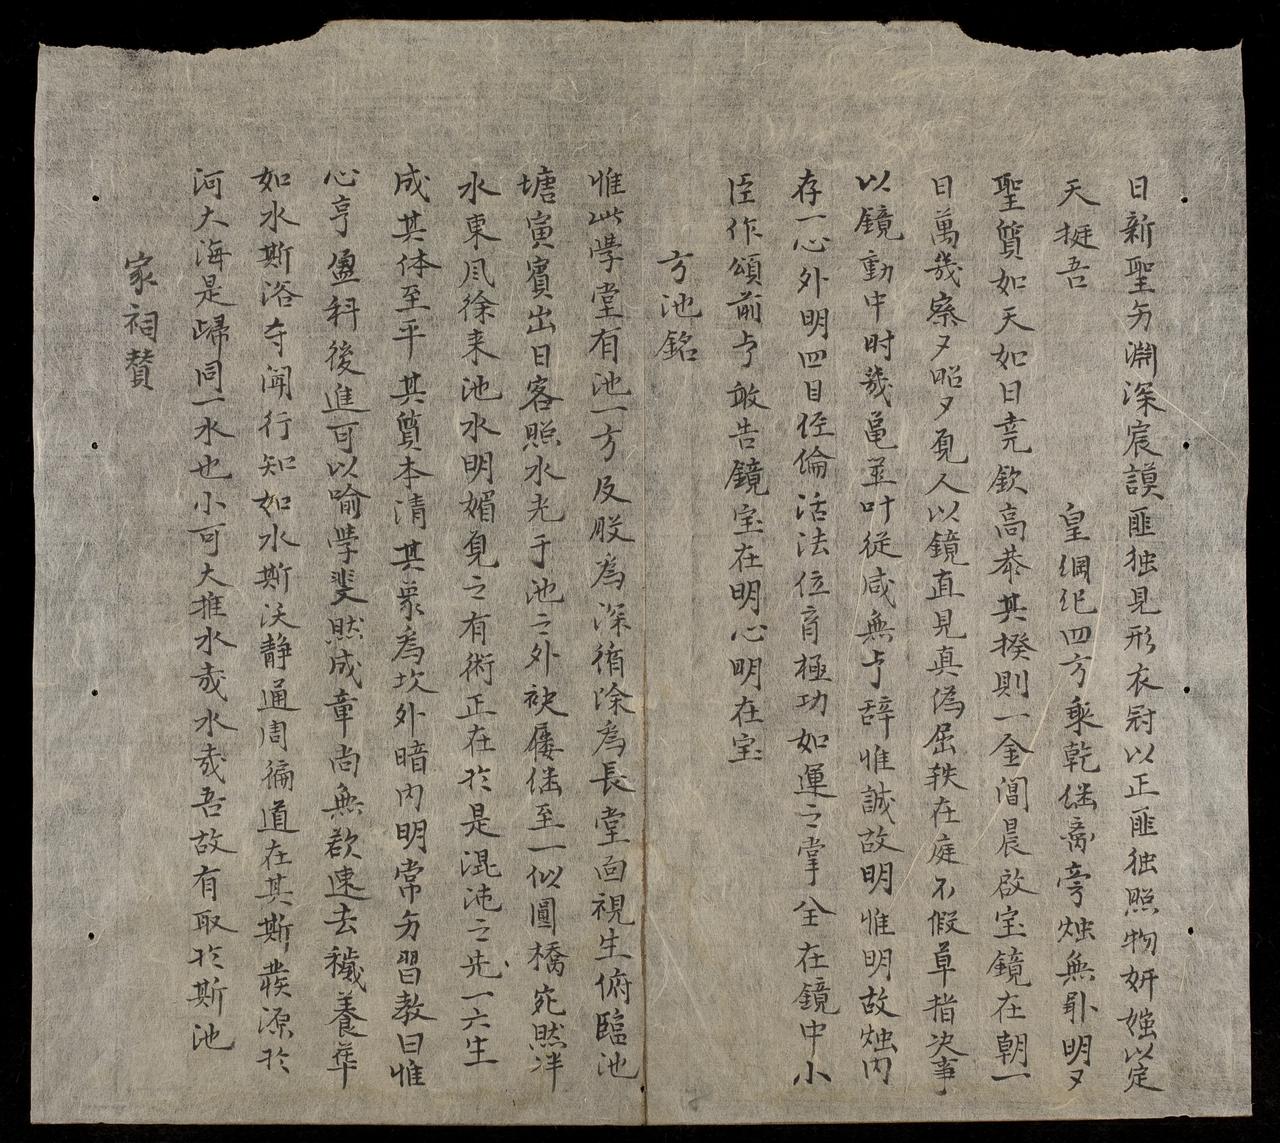 日新聖敬淵深宸謨匪独見形衣冠以正匪独照物妍媸以定
天挺吾 皇綱紀四方乘乾继离旁烛無卧明夕
聖質如天如日堯欽高恭其揆則一金閶晨啟宝鏡在朝一
日萬幾察夕昭夕見人以鏡直見真偽屈軼在庭不假草指决事
以鏡動中时幾黾並叶従咸無亐辞惟誠故明惟明故烛内
存一心外明四目经倫活法位育極功如運之掌全在鏡中小
臣作頌前亐敢告鏡宝在明心明在宝
方池銘
惟此学堂有池一方及股為深循除為長堂面視生俯臨池
塘寅賓出日客照水光于池之外袂屡继至一似圓橋宛然泮
水東風徐来池水明媚覓之有術正在於是混沌之先一六生
成其体至平其質本清其象為坎外暗内明常敬習教曰惟
心亨盈科後進可以喻学斐然成章尚無欲速去穢養华
如水斯浴寺闻行知如水斯沃静通周徧道在其斯裝源於
河大海是歸同一水也小可大推水哉水哉吾故有取於斯池
家祠賛